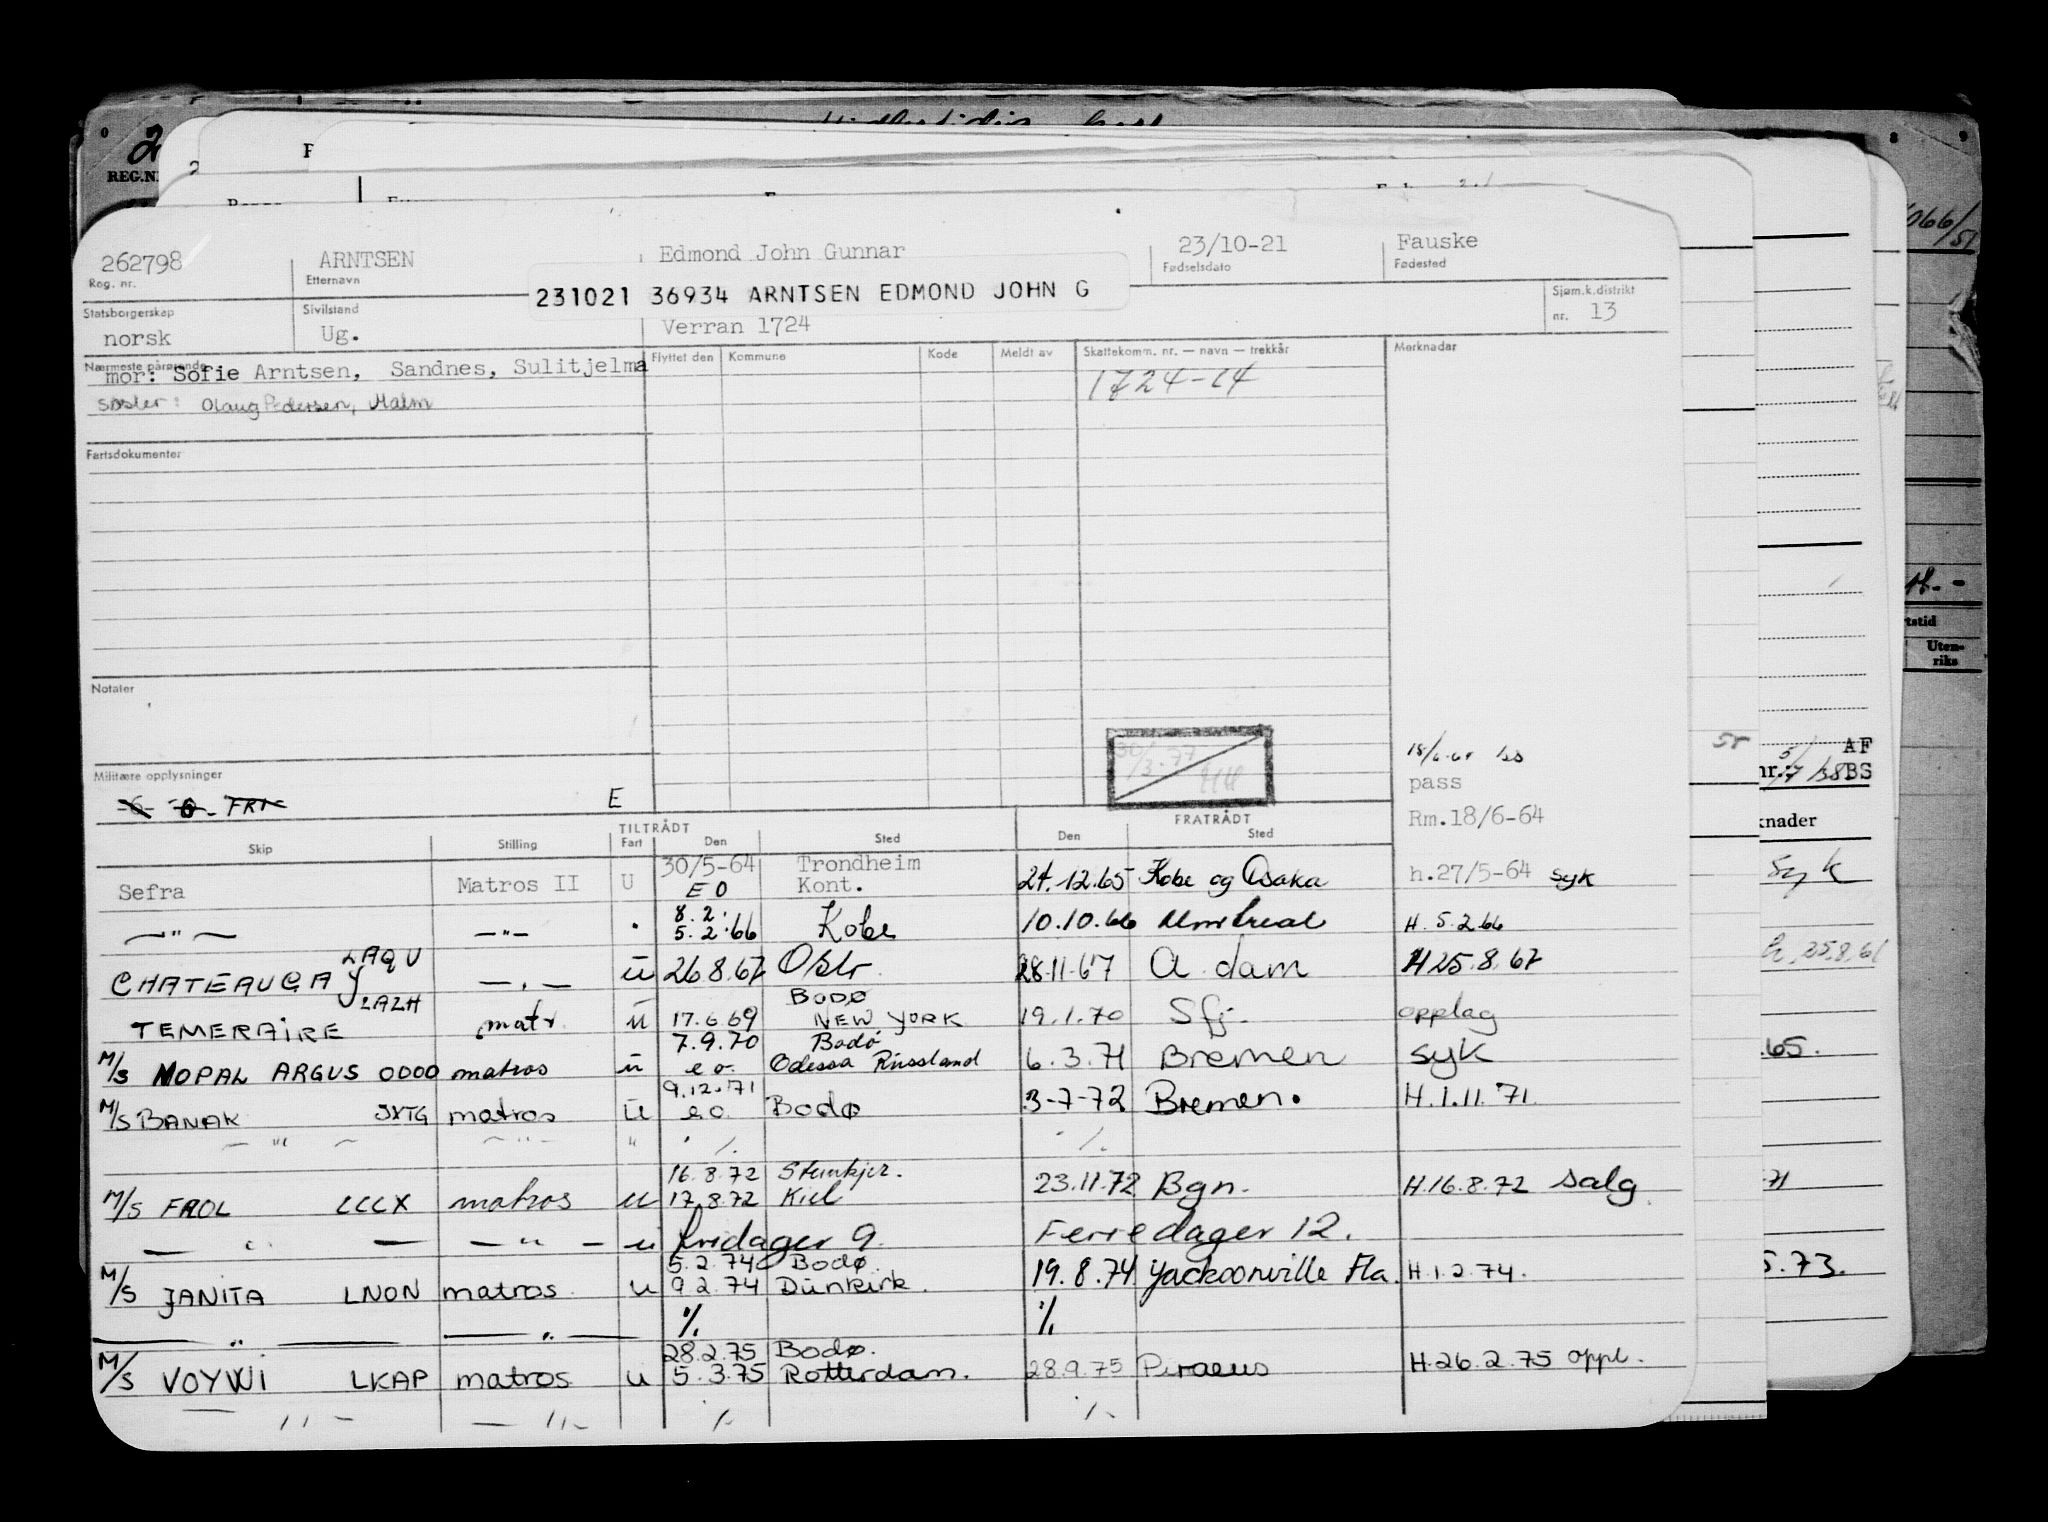 262798 ARNTSEN Edmond John Gunnar 23/10-21 Fauske
Reg. nr. Etternavn Fødselsdato Fødested
231021 36934 ARNTSEN EDMOND JOHN G
Statsborgerskap Sivilstand Sjøm.k.distrikt
norsk Ug. Verran 1724 nr. 13
Nærmeste pårørende Flyttet den Kommune Kode Meldt av Skattekomm. nr. — navn — trekkår Merknader
mor: Sofie Arntsen, Sandnes, Sulitjelma 1724-14
søster: Olaug Pedersen, Malm
Fartsdokumenter
Notater
Militære opplysninger
pass
E
Rm.18/6-64
TILTRÅDT FRATRÅDT
Skip Stilling Fart Den Sted Den Sted
30/5-64 Trondheim
Sefra Matros II U EO Kont. 24.12.65 Kobe og Osaka h.27/5-64 syk
8.2.
—"— —"— 5.2.66 Kobe 10.10.66 Montreal H. 5.2.66
LAQU
CHATEAUGAY —"— u 26.8.67 Oslo 28.11.67 A dam H 25.8.67
LALH BODØ
TEMERAIRE matr. u 17.6.69 NEW YORK 19.1.70 Sfj. opplag
7.9.70 Bodø
M/S NOPAL ARGUS ODOO matros u e.o. Odessa Russland 6.3.71 Bremen syk
9.12.71
M/S BANAK JXTG matros u e.o. Bodø 3-7-72 Bremen. H.1.11.71
— " — — " — " ./. ./.
16.8.72 Steinkjer.
M/S FROL LCCX matros u 17.8.72 Kiel 23.11.72 Bgn. H.16.8.72 salg
— " — — " — u fridager 9. Feriedager 12.
5.2.74 Bodø.
M/S JANITA LNON matros u 9.2.74 Dünkirk. 19.8.74 Jacksonville Fla. H.1.2.74.
— " — — " — ./. ./.
28.2.75 Bodø.
M/S VOYWI LKAP matros u 5.3.75 Rotterdam. 28.9.75 Piraeus H.26.2.75 oppl.
— " — — " — ./. ./.
REG.N
066/51
Uten-
riks
AF
BS
knader
Syk
h. 25.8.61
.65.
71
5.73.